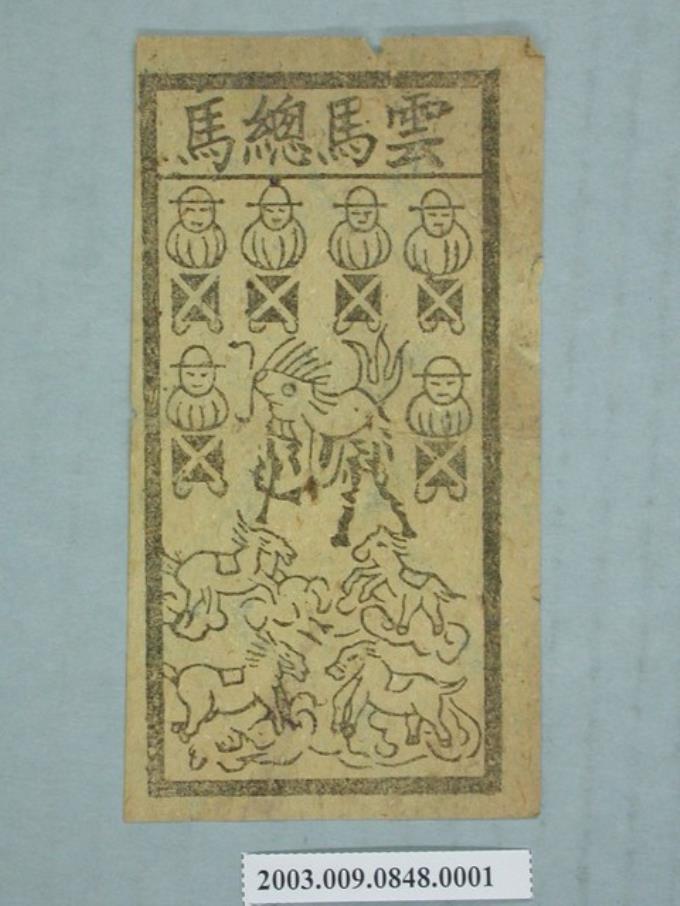 雲馬總馬
2003.009.0848.0001